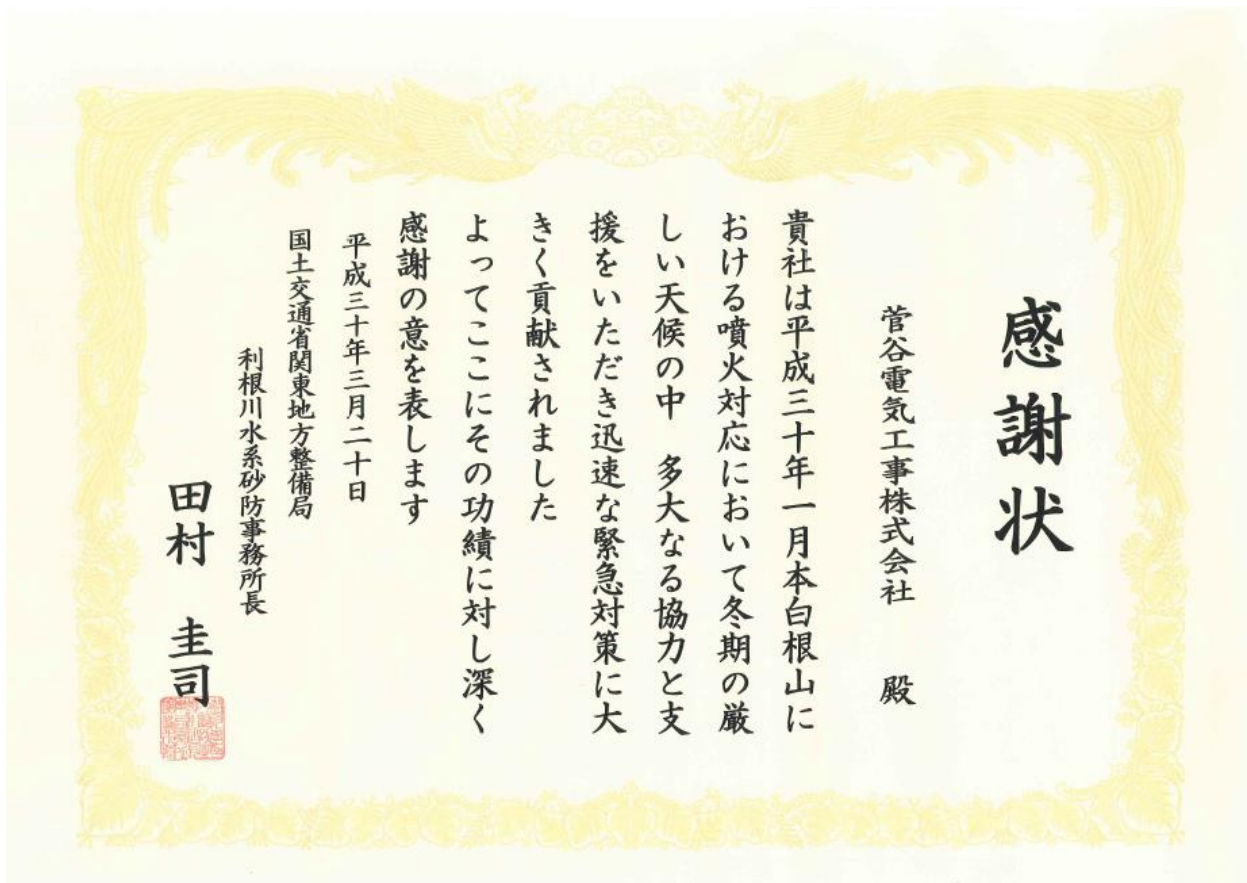 感謝状
菅谷電気工事株式会社　殿
貴社は平成三十年一月本白根山に
おける噴火対応において冬期の厳
しい天候の中　多大なる協力と支
援をいただき迅速な緊急対策に大
きく貢献されました
よってここにその功績に対し深く
感謝の意を表します
平成三十年三月二十日
国土交通省関東地方整備局
利根川水系砂防事務所長
田村　圭司